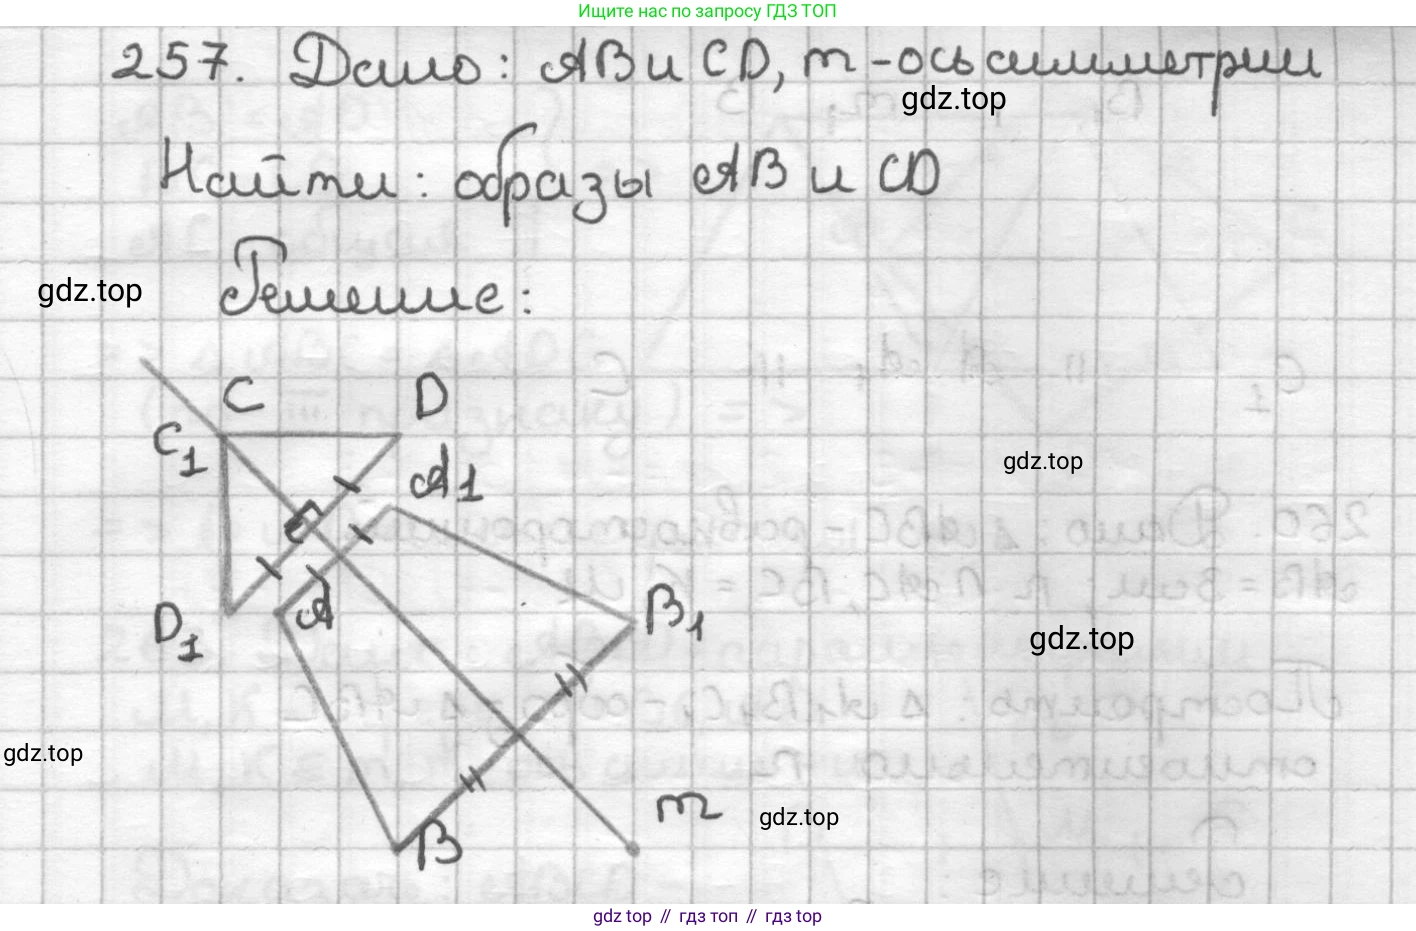 Ищите нас по запросу ГДЗ ТОП
257. Дано: AB и CD, m - ось симметрии
gdz.top
Найти: образы AB и CD
gdz.top
Решение:
C D
C1 A1
gdz.top
D1 A B1
gdz.top
gdz.top
m
gdz.top
B
gdz top // гдз топ // gdz top